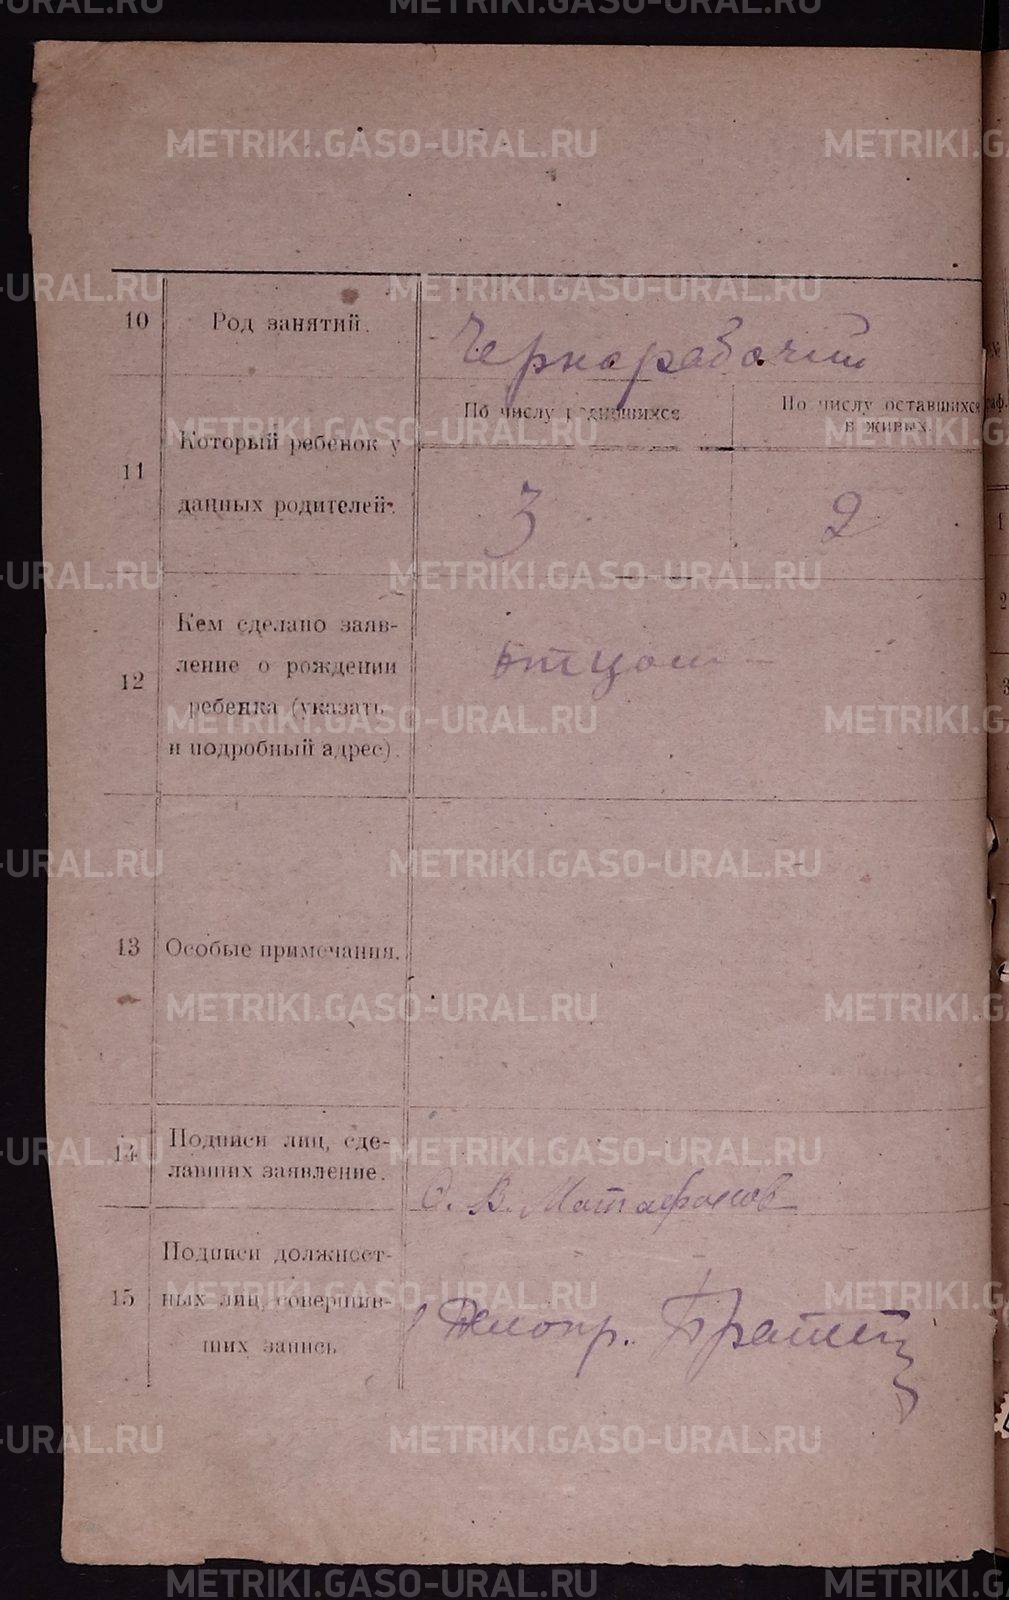 METRIKI.GASO-URAL.RU
10 Род занятий. Чернорабочий
11 Который ребенок у
данных родителей.
По числу родившихся
По числу оставшихся
в живых.
3 2
12 Кем сделано заяв-
ление о рождении
ребенка (указать
и подробный адрес).
отцом
13 Особые примечания.
14 Подписи лиц, сде-
лавших заявление.
В. Матафонов
15 Подписи должност-
ных лиц, совершив-
ших запись
Делопр.